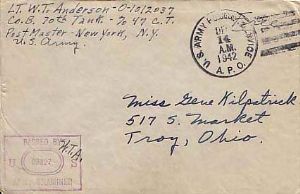 LT. W.T. Anderson-O-1012037
Co. B. 70th Tank- % 47 C.T.
Post Master-New York, N.Y.
U.S. Army.
U.S. ARMY POSTAL SERVICE
14
A.M.
1942
A.P.O.
Miss Gene Kilpatrick
517 S. Market
Troy, Ohio.
W.T.A.
PASSED BY
U S
ARMY EXAMINER